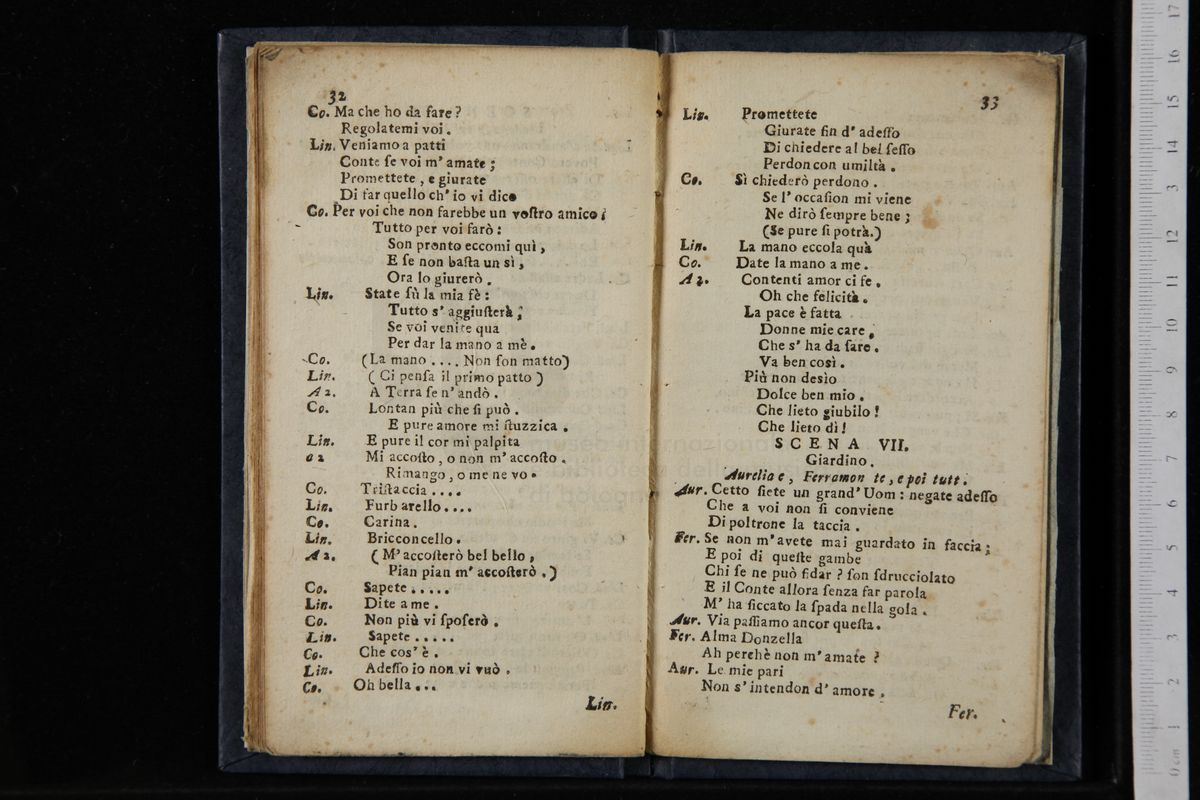 32
Co. Ma che ho da fare?
Regolatemi voi.
Lin. Veniamo a patti
Conte ſe voi m'amate;
Promettete, e giurate
Di far quello ch'io vi dico
Co. Per voi che non farebbe un voſtro amico?
Tutto per voi farò:
Son pronto eccomi quì,
E ſe non baſta un sì,
Ora lo giurerò.
Lin. State ſù la mia fè:
Tutto s'aggiuſterà;
Se voi venite quà
Per dar la mano a mè.
Co. (La mano .... Non ſon matto)
Lin. (Ci penſa il primo patto)
A 2. A Terra ſe n'andò.
Co. Lontan più che ſi può.
E pure amore mi ſtuzzica.
Lin. E pure il cor mi palpita
a 2 Mi accoſto, o non m'accoſto.
Rimango, o me ne vo.
Co. Triſtaccia ....
Lin. Furb arello ....
Co. Carina.
Lin. Bricconcello.
A 2. (M'accoſterò bel bello,
Pian pian m'accoſterò.)
Co. Sapete .....
Lin. Dite a me.
Co. Non più vi ſpoſerò.
Lin. Sapete .....
Co. Che cos'è.
Lin. Adeſſo io non vi vuò.
Co. Oh bella ...
Lin.
33
Lin. Promettete
Giurate fin d'adeſſo
Di chiedere al bel ſeſſo
Perdon con umiltà.
Co. Sì chiederò perdono.
Se l'occaſion mi viene
Ne dirò ſempre bene;
(Se pure ſi potrà.)
Lin. La mano eccola quà
Co. Date la mano a me.
A 2. Contenti amor ci fe.
Oh che felicità.
La pace è fatta
Donne mie care,
Che s'ha da fare.
Va ben così.
Più non desìo
Dolce ben mio.
Che lieto giubilo!
Che lieto dì!
SCENA VII.
Giardino.
Aurelia e, Ferramon te, e poi tutt.
Aur. Cetto ſiete un grand'Uom: negate adeſſo
Che a voi non ſi conviene
Di poltrone la taccia.
Fer. Se non m'avete mai guardato in faccia;
E poi di queſte gambe
Chi ſe ne può fidar? ſon ſdrucciolato
E il Conte allora ſenza far parola
M'ha ficcato la ſpada nella gola.
Aur. Via paſſiamo ancor queſta.
Fer. Alma Donzella
Ah perchè non m'amate?
Aur. Le mie pari
Non s'intendon d'amore.
Fer.